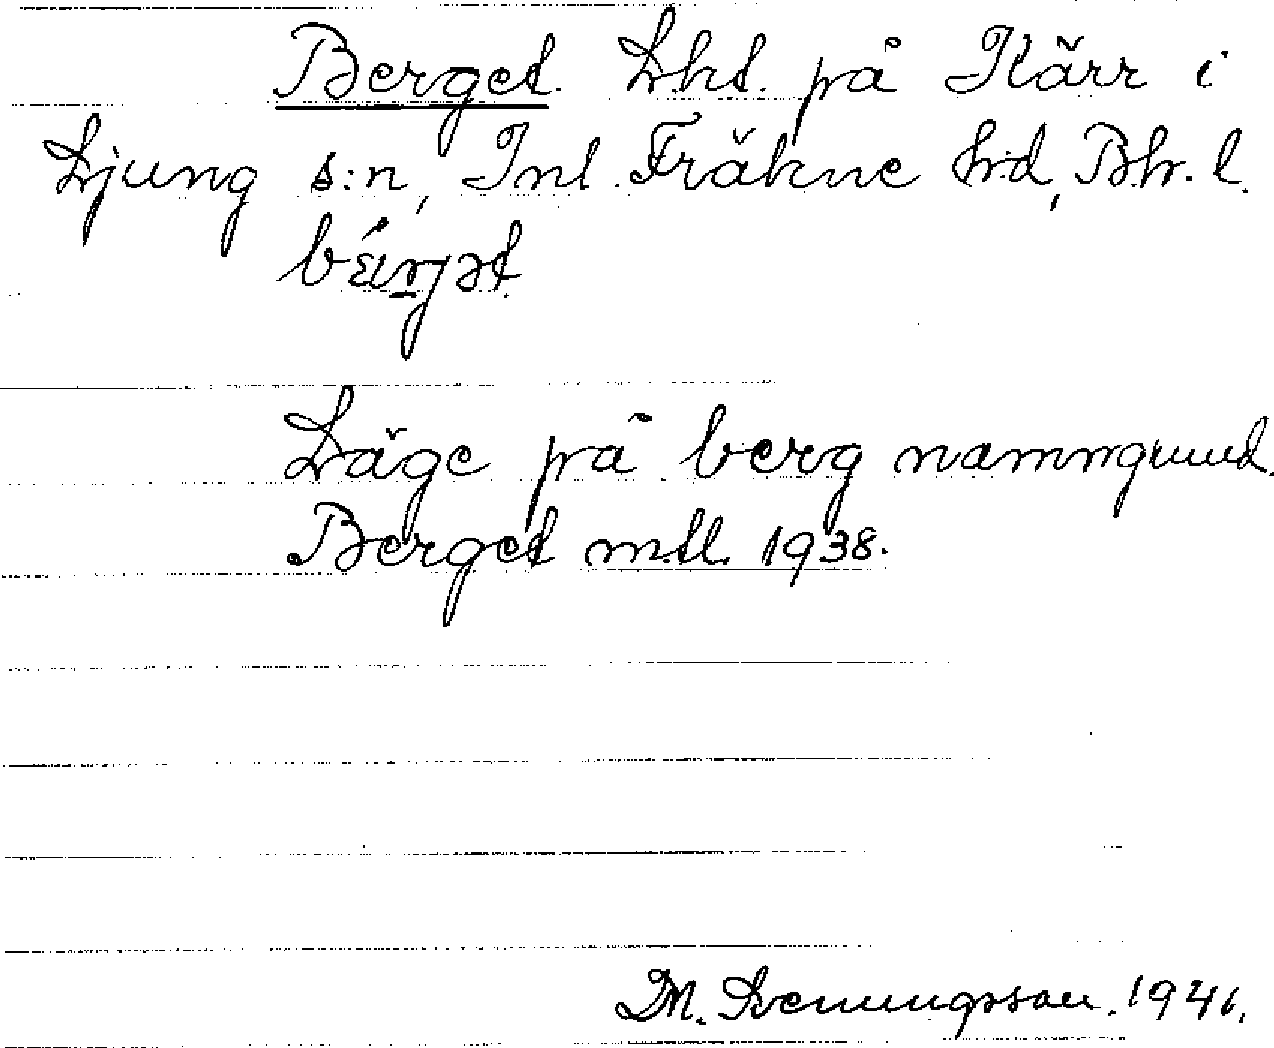 Berget. Lht. på Kärr i
Ljung s:n, Inl. Fräkne hd, Bh. l.
Läge på berg namngivet
Berget m.tl. 1938.
M. Svenungsson. 1941.